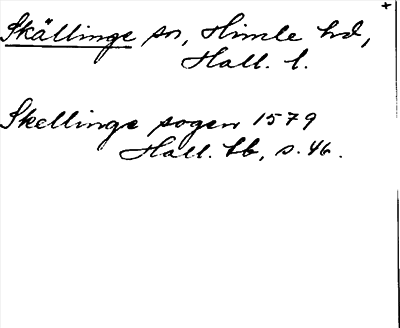 +
Skällinge sn, Himle hd,
Hall. l.
Skellinge sogen 1579
Hall. tb, s. 46.